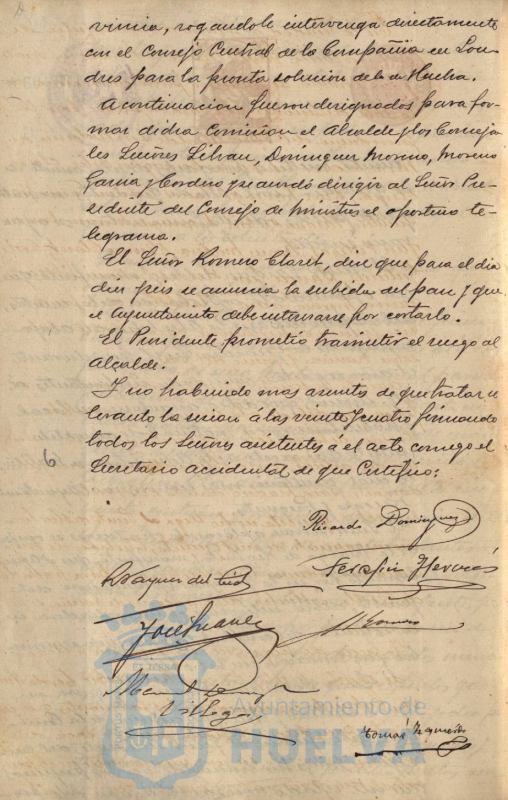 vincia, rogandole intervenga directamente
con el Consejo Central de la Compañia en Lon
dres para la pronta solucion de la de Huelva.
A continuacion fueron designados para for
mar dicha Comision el Alcalde y los Conceja
les Señores Lihau, Dominguez Moreno, Moreno
Garcia y Cordero y se acordó dirigir al Señor Pre
sidente del Consejo de Ministros el oportuno te
legrama.
El Señor Romero Claret, dice que para el dia
diez y seis se anuncia la subida del pan y que
el Ayuntamiento debe interesarse por cortarlo.
El Presidente prometió trasmitir el ruego al
Alcalde.
Y no habiendo mas asuntos de que tratar se
levantó la sesion á las veinte y cuatro firmando
todos los Señores asistentes á el acto conmigo el
Secretario accidental de que Certifico:
6
Ricardo Dominguez
Vazquez del
Serafin
José Suarez
Manuel
Villegas
Tomás
Ayuntamiento de
HUELVA